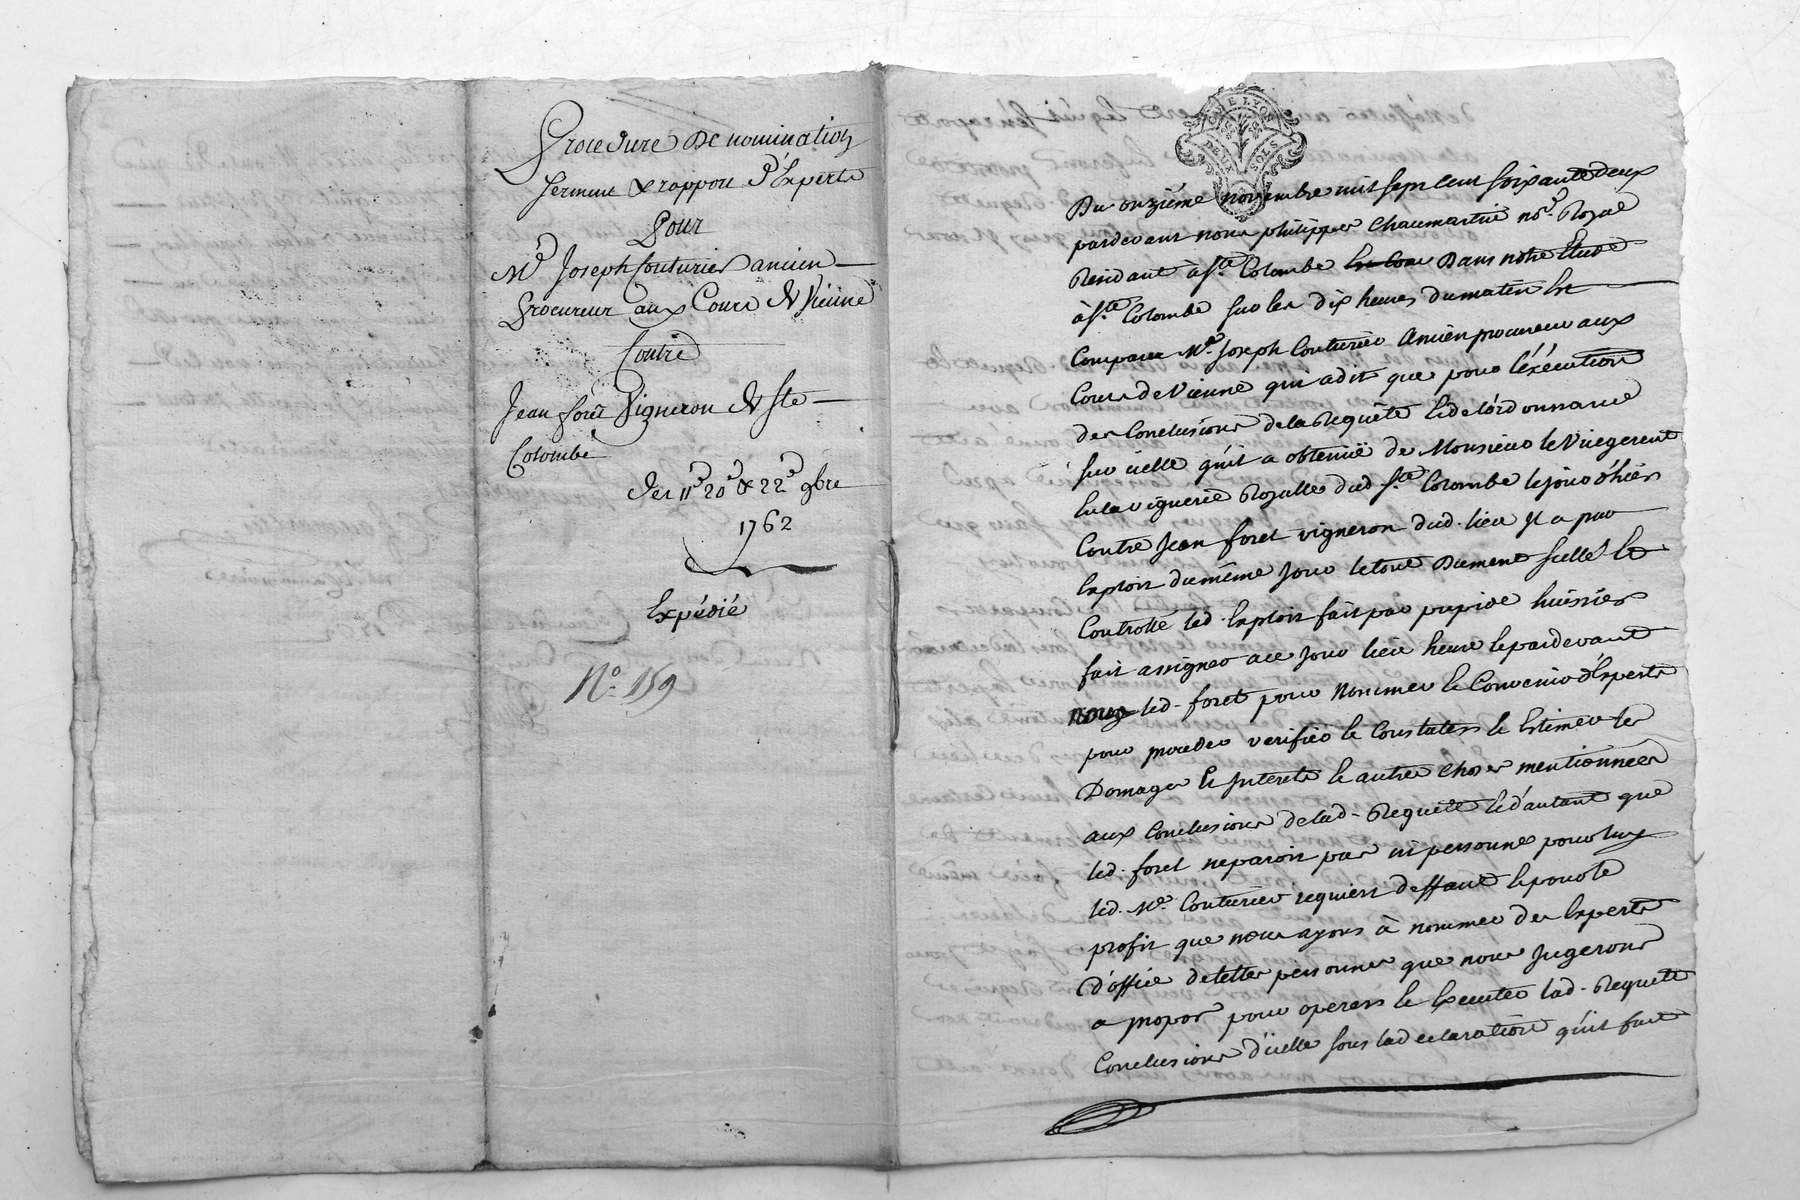 Procedure De nomination
serment & rapport d'Experts
Pour
Me. Joseph Couturier ancien
Procureur aux Cours de Vienne
Contre
Jean foret Vigneron de Ste
Colombe
Des 11e 20e & 22e 9bre
1762
Expédié
No. 159
GN. DE LYON
DEUX SOLS
Du onziéme novembre mil sept cent soixante deux
pardevant nous philippe Chaumartin nore. Royal
Résidant à Ste. Colombe Dans notre Etude
à Ste. Colombe sur les dix heures du matin Est
Comparu Me. Joseph Couturier Ancien procureur aux
Cours de Vienne qui a dit que pour l'éxécution
des Conclusions de la Requête & de l'ordonnance
sur icelle qu'il a obtenuë de Monsieur le Viguerent
en la viguerie Royalle dud. Ste. Colombe le jour d'hier
Contre Jean foret vigneron dud. lieu Il a par
Exploit du même jour le tout Dument scellé Et
Controllé led. Exploit fait par huissier
fait assigner a ce jour lieu heure & pardevant
nous led. foret pour Nommer & Convenir d'Experts
pour proceder verifier & Constater & Estimer les
Domages & Interets & autres choses mentionnées
aux Conclusions de lad. Requête & d'autant que
led. foret ne paroit pas ni personne pour luy
led. Me. Couturier requiert deffaut & pour le
profit que nous ayons à nommer des Experts
d'office de telles personnes que nous Jugerons
a propos pour operer & Executer lad. Requete
Conclusions d'icelle sous la declaration qu'il fait